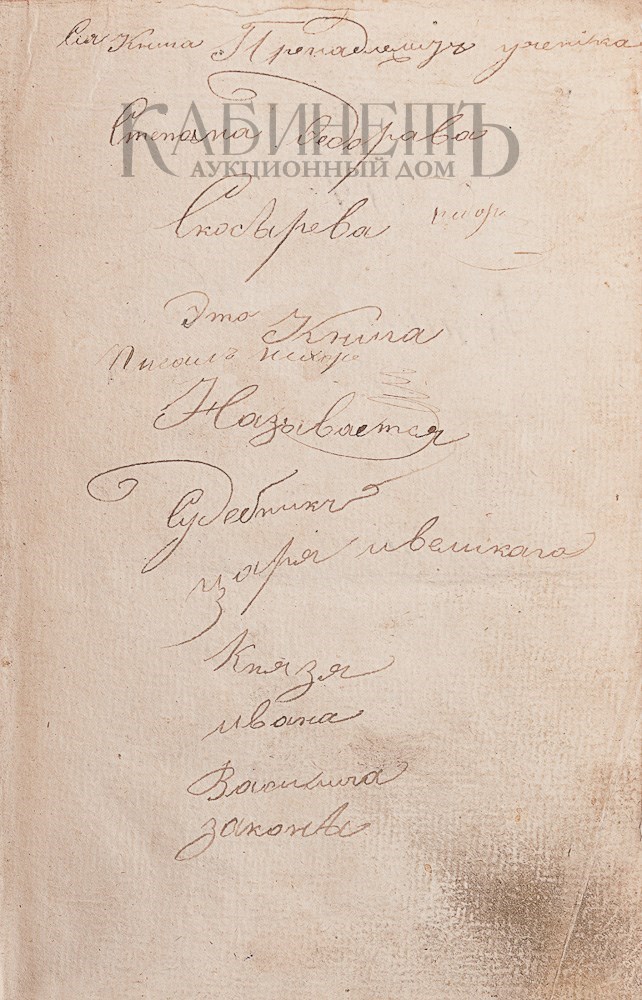 Сия Книга Принадлежитъ ученика
КАБИНЕТЪ
Степана Федорава
АУКЦИОННЫЙ ДОМ
Скосырева
Это Книга
Писалъ
Называется
Судебникъ
царя ивеликаго
Князя
ивана
Василича
законы